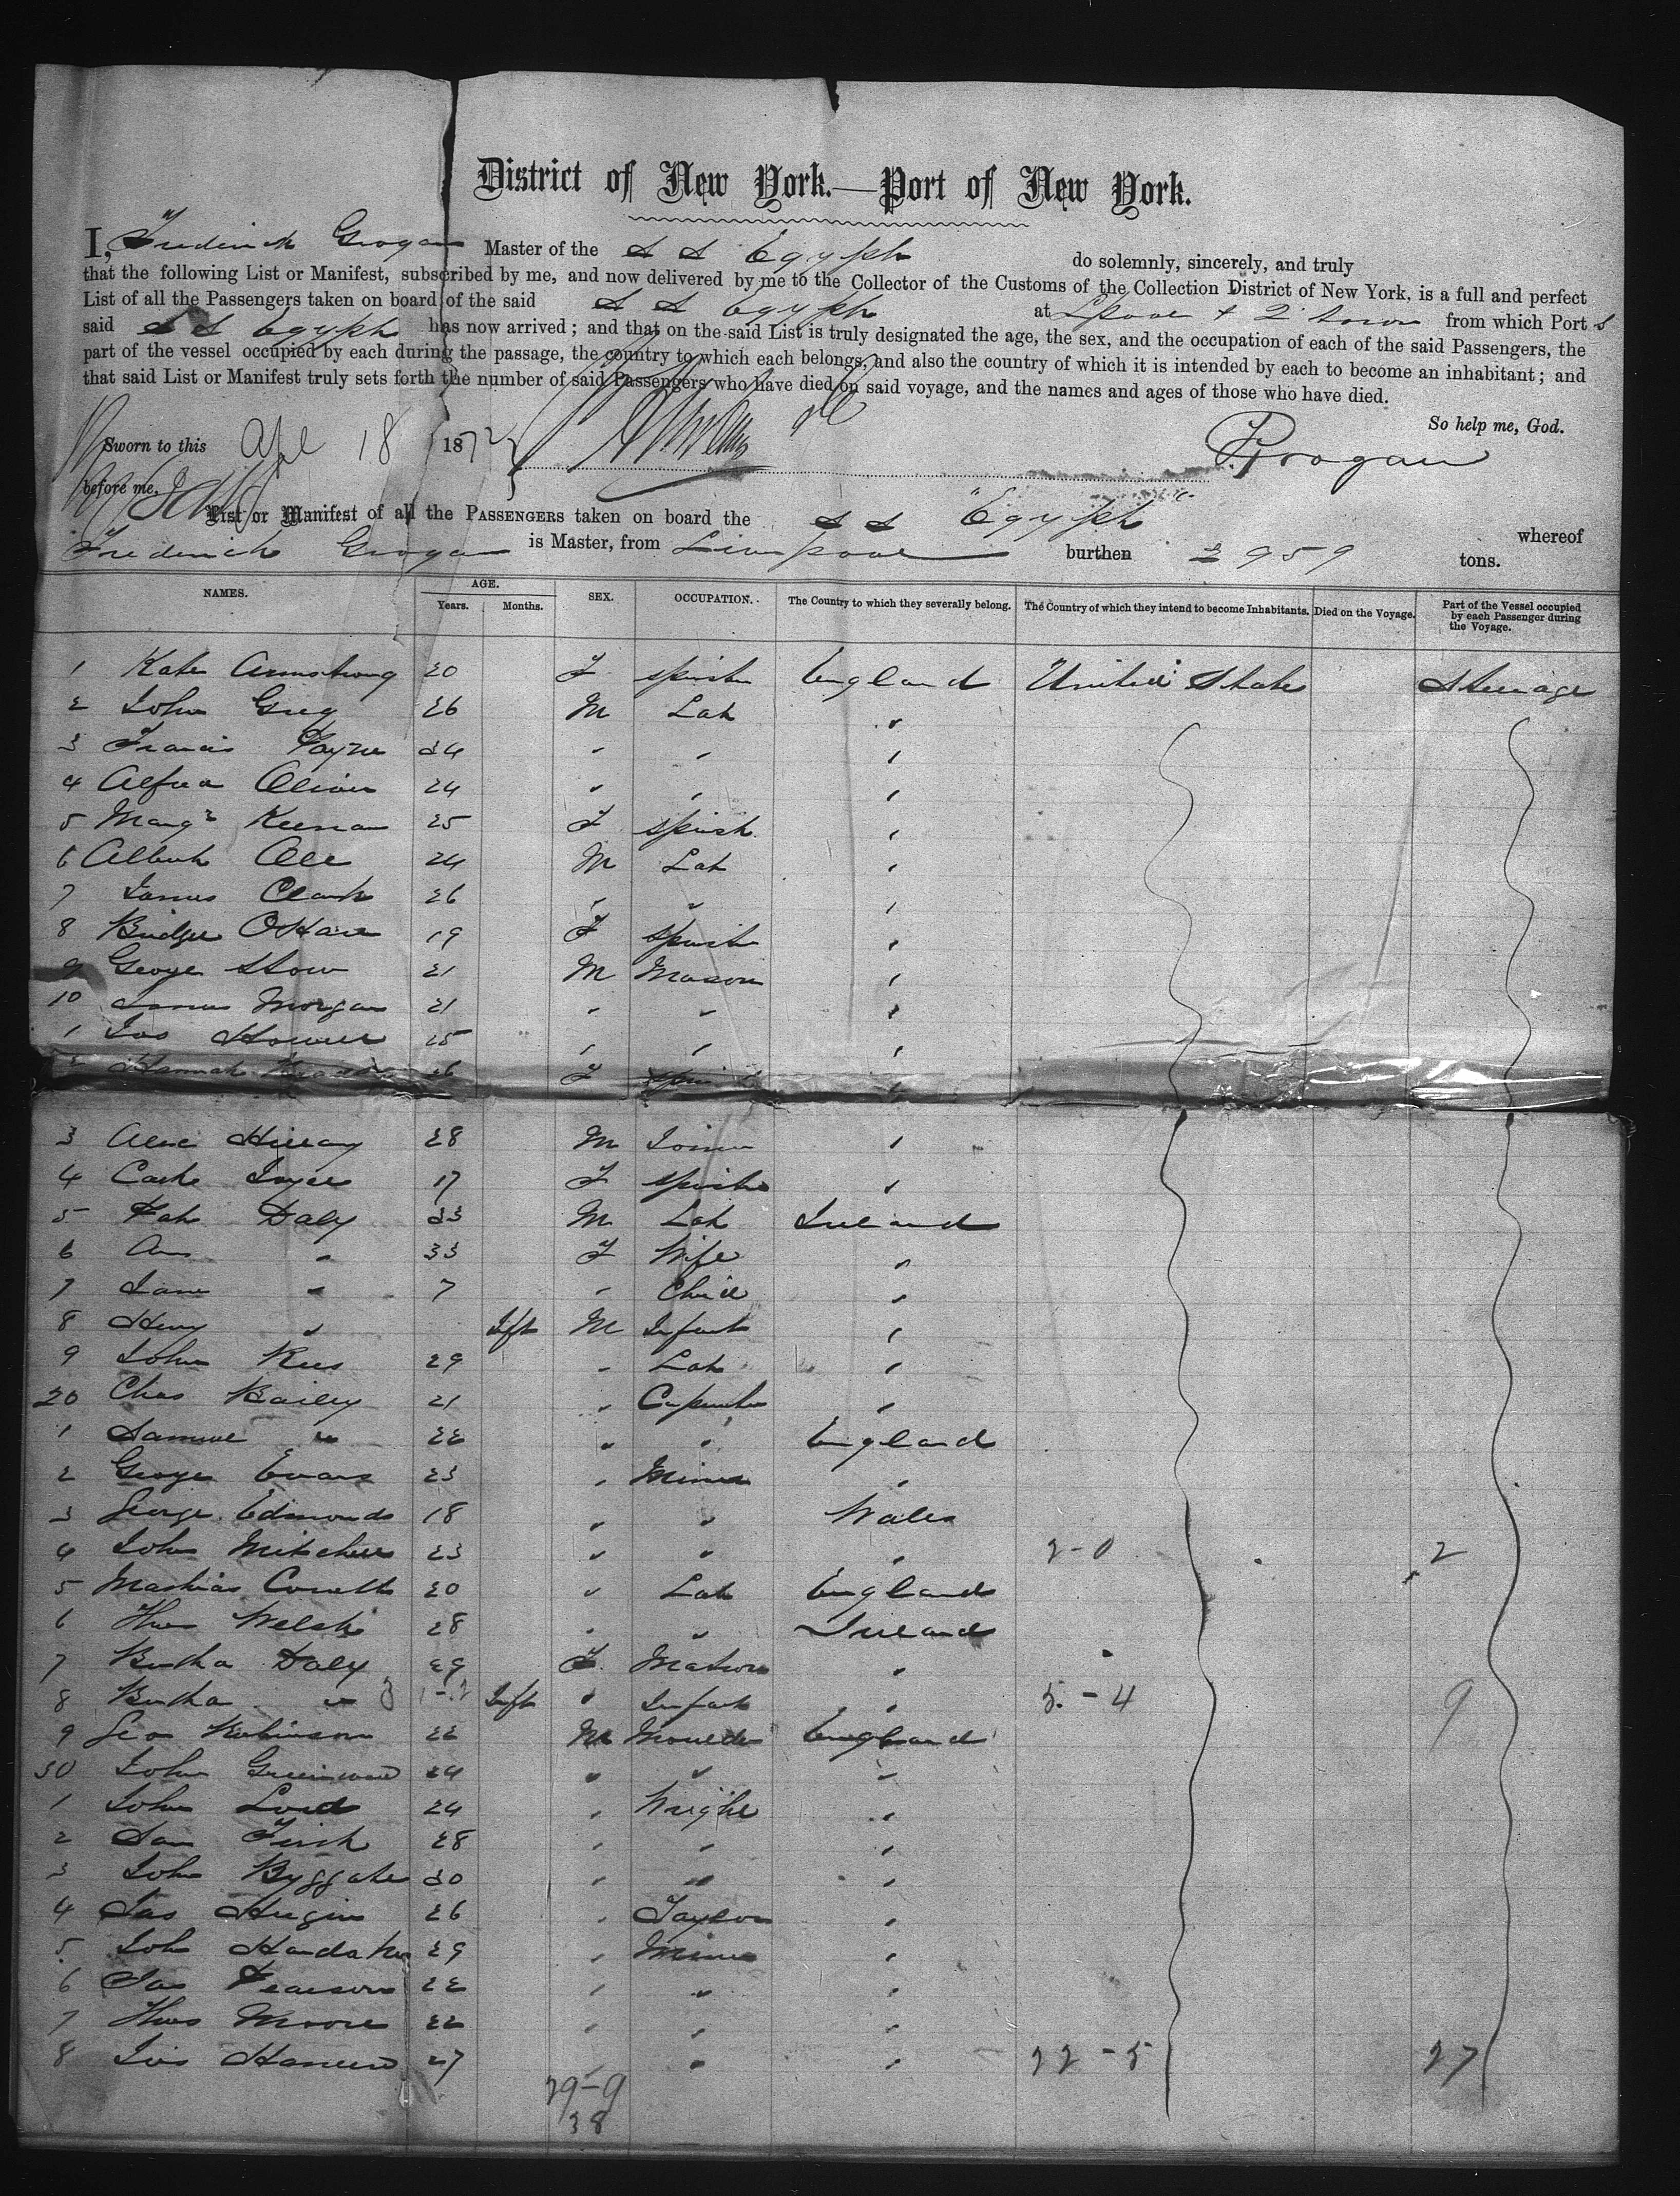 District of New York.—Port of New York.
I, Frederick Grogan Master of the S S Egypt do solemnly, sincerely, and truly
that the following List or Manifest, subscribed by me, and now delivered by me to the Collector of the Customs of the Collection District of New York, is a full and perfect
List of all the Passengers taken on board of the said S S Egypt at Lpool & Q'town from which Port s
said S S Egypt has now arrived; and that on the said List is truly designated the age, the sex, and the occupation of each of the said Passengers, the
part of the vessel occupied by each during the passage, the country to which each belongs, and also the country of which it is intended by each to become an inhabitant; and
that said List or Manifest truly sets forth the number of said Passengers who have died on said voyage, and the names and ages of those who have died.
So help me, God.
Sworn to this Apl 18 1872 F Grogan
before me,
List or Manifest of all the PASSENGERS taken on board the S S "Egypt" whereof
Frederick Grogan is Master, from Liverpool burthen 2959 tons.
NAMES. AGE. Years. Months. SEX. OCCUPATION. The Country to which they severally belong. The Country of which they intend to become Inhabitants. Died on the Voyage. Part of the Vessel occupied by each Passenger during the Voyage.
1 Kate Armstrong 20 F Spinster England United States Steerage
2 John Greg 26 M Lab "
3 Francis Payne 34 " " "
4 Alfred Oliver 24 " " "
5 Margt Keenan 25 F Spinst "
6 Albert 24 M Lab "
7 James Clark 26 " " "
8 Bridget OHare 19 F Spinster "
9 George Stow 21 M Mason "
10 James Morgan 21 " " "
1 Jas Howell 25 " " "
2 Hannah 26 F "
3 28 M Joiner "
4 Cath Joyce 17 F Spinster "
5 Pat Daly 33 M Lab Ireland
6 Ann " 33 F Wife "
7 Jane " 7 " Child "
8 Henry " Inft M Infant "
9 John Rees 29 " Lab "
20 Chas Bailey 21 " Carpenter "
1 Samuel " 22 " " England
2 George Evans 23 " Miner "
3 George Edmonds 18 " " Wales
4 John Mitchell 23 " " " 2-0 2
5 Mathias 20 " Lab England
6 Thos Welsh 28 " " Ireland
7 Bertha Daly 29 F Matron "
8 Bertha " Inft " Infant " 5-4 9
9 Geo Robinson 22 M Moulder England
30 John Greenwood 24 " " "
1 John Lord 24 " Wright "
2 Sam Firth 28 " " "
3 John Byggate 30 " " "
4 Jas 26 " Taylor "
5 Joh 29 " Miner "
6 Jas Pearson 22 " " "
7 Thos Moore 22 " " "
8 27 " " 22-5 27
29-9
38